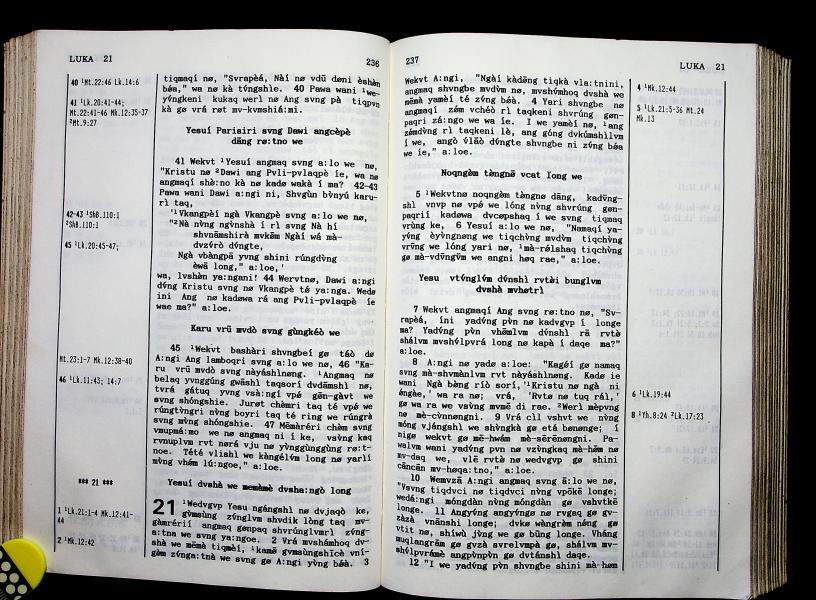 LUKA 21
236
40 ¹Mt.22:46 Lk.14:6
41 ¹Lk.20:41-44;
Mt.22:41-46 Mk.12:35-37
²Mt.9:27
42-43 ¹Shß.110:1
²Shß.110:1
45 ¹Lk.20:45-47;
Mt.23:1-7 Mk.12:38-40
46 ¹Lk.11:43; 14:7
*** 21 ***
1 ¹Lk.21:1-4 Mk.12:41-
44
2 ¹Mk.12:42
tiqmaqí nø, "Svrapèá, Nàí nø vdū døni èshàn
béa," wa nø kà tv́ngshìe. 40 Pawa wani ¹we-
yv́ngkeni kukaq werì nø Ang svng pà tiqpvn
kà gø vrá røt mv-kvmshiá:mi.
Yesuí Parisiri svng Dawi angcèpè
dāng rø:tno we
41 Wekvt ¹Yesuí angmaq svng a:lo we nø,
"Kristu nø ²Dawi ang Pvli-pvlaqpè íe, wa nø
angmaqí shè:no kà nø kadø wakà í ma? 42-43
Pawa wani Dawi a:ngi ni, Shvgùn bv̀nyú karu-
rì taq,
'¹Vkangpèí ngà Vkangpè svng a:lo we nø,
"²Nà nv̀ng ngv̀nshà í rì svng Nà hí
shvnāmshirà mvkēm Ngàí wá mà-
dvzv́rò dv́ngte,
Ngà vbàngpā yvng shini rúngdv̀ng
èwā long," a:loe,'
wa, lvshèn ya:ngani! 44 Wervtnø, Dawi a:ngi
dv́ng Kristu svng nø Vkangpè té ya:nga. Wedø
íni Ang nø kadøwa rá ang Pvli-pvlaqpè íe
wae ma?" a:loe.
Karu vrū mvdò svng gùngkéò we
45 ¹Wekvt bashàri shvngbeí gø táò dø
A:ngi Ang lamboqri svng a:lo we nø, 46 "Ka-
ru vrū mvdò svng nàyáshìnøng. ¹Angmaq nø
belaq yvnggúng gwāshì taqsorì dvdāmshì nø,
tvrá gátuq yvng vsà:ngì vpé gēn-gàvt we
svng shóngshìe. Jurøt chèmrì taq té vpé wø
rúngtv̀ngrì nv̀ng boyrì taq té ring we rúngrà
svng mv̀ng shóngshìe. 47 Mēmàrérì chèm svng
vmupmá:mo we nø angmaq ni í ke, vsv̀ng kaq
rvnuplvm rvt nørá vju nø yv̀nggùnggùng rø:t-
noe. Tété vlìshì we kàngélv́m long nø yarìí
mv̀ng vhǿm lú:ngoe," a:loe.
Yesuí dvshà we memàmè dvsha:ngò long
21 ¹Wedvgvp Yesu ngángshì nø dvjaqò ke,
gv̀msùng zv́nglvm shvdik lòng taq mv-
gàmrèríí angmaq gønpaq shvrúnglvmrì zv́ng-
a:tna we svng ya:ngoe. 2 Vrá mvshámhoq dv-
shà we mēmà tiqmèí, ¹kamē gvmsùngshìcè vní-
gèm zv́nga:tnà we svng gø A:ngi yv̀ng béà. 3
237
LUKA 21
Wekvt A:ngi, "Ngàí kàdēng tiqkà vla:tnini,
angmaq shvngbe mvdv̀m nø, mvshv́mhoq dvshà we
mēmà yamèí té zv́ng béà. 4 Yarì shvngbe nø
angmaqí zǿm vchéò rì taqkeni shrúng gøn-
paqrì zá:ngo we wa íe. I we yamèí nø, ¹ang
zømdv̀ng rì taqkeni lè, ang góng dvkúmshìlvm
í we, angò v́láò dv́ngte shvngbe ni zv́ng béa
we íe," a:loe.
Noqngèm tèngnø̄ vcat long we
5 ¹Wekvtnø noqngèm tèngnø̄ dāng, kadv̄ng-
shì vnvp nø vpé we lóng nv̀ng shvrúng gøn-
paqrìí kadøwa dvcøpshaq í we svng tiqmaq
vrùng ke, 6 Yesuí a:lo we nø, "Namaqí ya-
yv́ng éyv̀ngnøng we tiqchv̀ng mvdv̀m tiqchv̀ng
vrv̄ng we lóng yarì nø, ¹mà-rálshaq tiqchv̀ng
gø mà-vdv̄ngv̄m we angnì høq rae," a:loe.
Yesu vtv́nglv́m dv́nshì rvtèì bunglvm
dvshà mvhøtrì
7 Wekvt angmaqí Ang svng rø:tno nø, "Sv-
rapèá, íni yadv́ng pv̀n nø kadvgvp í longe
ma? Yadv́ng pv̀n vhēmlvm dv́nshì rá rvtè
shálvm mvshv́lpvrá long nø kapà í daqe ma?"
a:loe.
8 A:ngi nø yadø a:loe: "Kagéí gø namaq
svng mà-shvmànlvm rvt nàyáshìnøng. Kadø íe
wani Ngà bèng rìò sorì, '¹Kristu nø ngà ni
éngàe,' wa ra nø; vrá, 'Rvtø nø tuq rál,'
gø wa ra we vasv̀ng mvmē dì rae. ²Werì mèpvng
nø mà-cv̀nnøngnì. 9 Vrá cìì vshvt we nv̀ng
móng vjángshì we shv̀ngkà gø etá bønønge; í
nigø wekvt gø mē-hwám mà-sērēnøngnì. Pa-
walvm wani yadv́ng pvn nø vzv̀ngkaq mà-hēm nø
mv-daq we, vlē rvtè nø wedvgvp gø shìnì
cāncān mv-høqa:tno," a:loe.
10 Wemvzā A:ngi angmaq svng ā:lo we nø,
"Vsvng tiqdvcì nø tiqdvcì nv̀ng vpōkē longe;
wedá:ngì móngdàn nv̀ng móngdàn gø vshvtkē
longe. 11 Angyv́ng angyv́ngø nø rvgaq gø gv-
zàzà vnānshì longe; dvkø wàngrèm nǿng gø
ttit nø, shìwù jv́ng we gø būng longe. Vháng
muqlangrām gø gvzà svrēlvmpà gø, shálvm mv-
shv́lpvrámè angpv̀npv̀n gø dvtánshì daqe.
12 "I we yadv́ng pv̀n shvngbe shìnì mà-høm
4 ¹Mk.12:44
5 ¹Lk.21:5-36 Mt.24
Mk.13
6 ¹Lk.19:44
8 ¹Yh.8:24 ²Lk.17:23